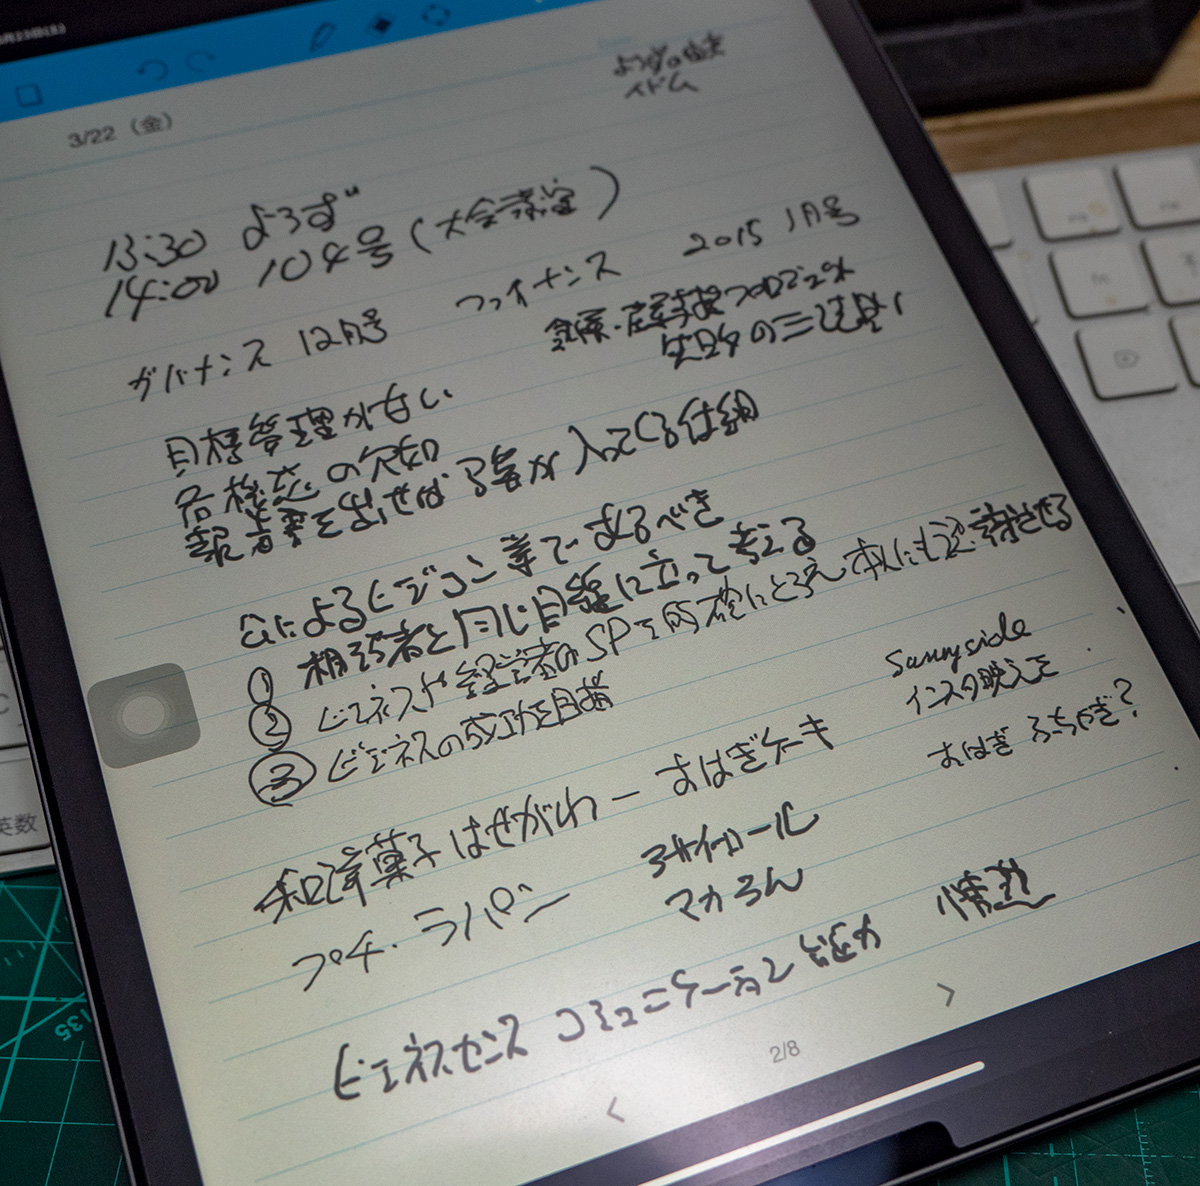 3/22（金）
よろずの由来
イドム
13:30 よろず
14:00 104号（大会議室）
ガバナンス 12月号
ファイナンス 2015 1月号
金融・産業支援プロデュ
失敗の三法則
目標管理がない
各機関の欠如
報告書を出せば予算が入ってくる仕組
公によるビジョン等であるべき
① 相談者と同じ目線に立って考える
② ビジネスや経営者のSPを的確にとらえ 本人にも認識させる
③ ビジネスの成功を目指
Sunnyside
インスタ映えを
和洋菓子はせがわ ー おはぎケーキ
おはぎ ふちやぎ?
プチ・ラパン
ヨサイロール
マカろん
ビジネスセンス コミュニケーション能力 情熱
2/8
英数
35